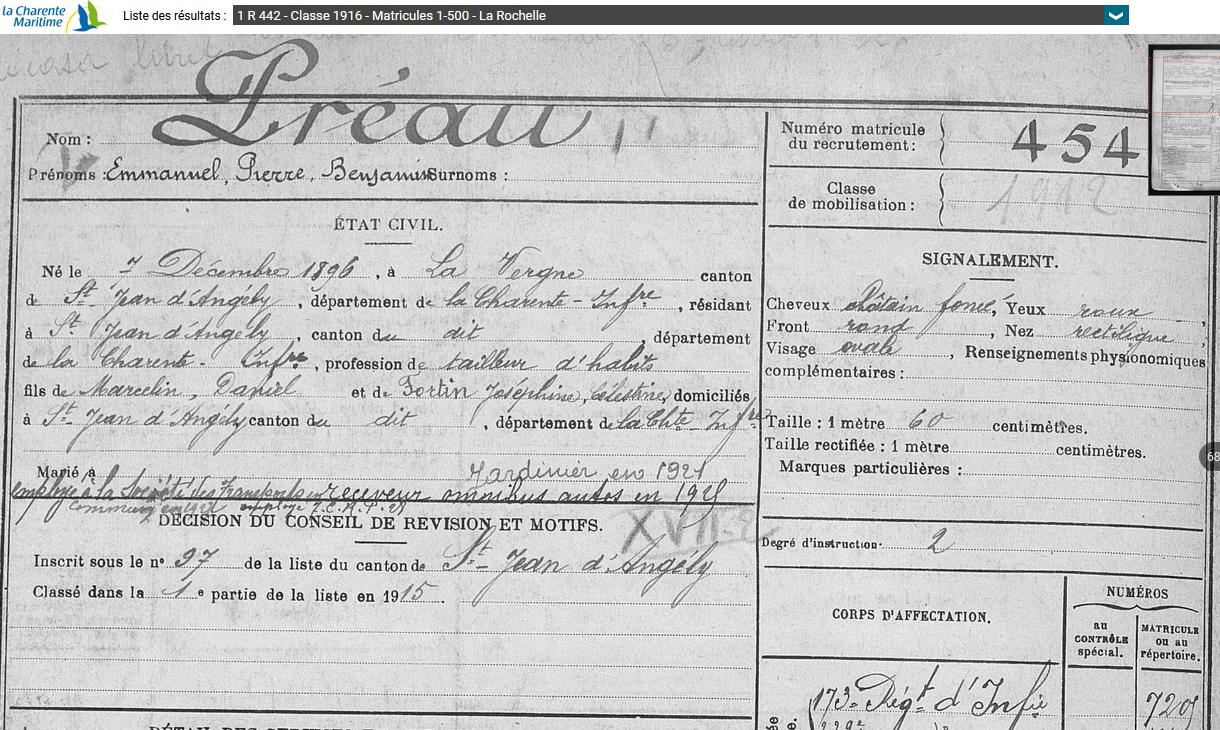 la Charente Maritime
Liste des résultats : 1 R 442 - Classe 1916 - Matricules 1-500 - La Rochelle
Nom : Préau
Prénoms : Emmanuel, Pierre, Benjamin Surnoms :
Numéro matricule du recrutement : 454
Classe de mobilisation : 1912
ÉTAT CIVIL.
Né le 7 Décembre 1896, à La Vergne canton
de St Jean d'Angély, département de la Charente-Infre, résidant
à St Jean d'Angély, canton du dit département
de la Charente-Infre, profession de tailleur d'habits
fils de Marcelin, Daniel et de Fortin Joséphine, Célestine, domiciliés
à St Jean d'Angély canton du dit, département de la Chte Infre
Marié à Jardinier en 1921
employé à la Société des Transports en receveur omnibus autos en 1925
commun
DÉCISION DU CONSEIL DE REVISION ET MOTIFS.
XVII-2
Inscrit sous le no 97 de la liste du canton de St Jean d'Angély
Classé dans la 1e partie de la liste en 1915.
SIGNALEMENT.
Cheveux châtain foncé, Yeux roux,
Front rond, Nez rectiligne,
Visage ovale, Renseignements physionomiques
complémentaires :
Taille : 1 mètre 60 centimètres.
Taille rectifiée : 1 mètre centimètres.
Marques particulières :
Degré d'instruction 2
CORPS D'AFFECTATION.
NUMÉROS
au CONTRÔLE spécial.
MATRICULE ou au répertoire.
173e Régt d'Infie 7205
68